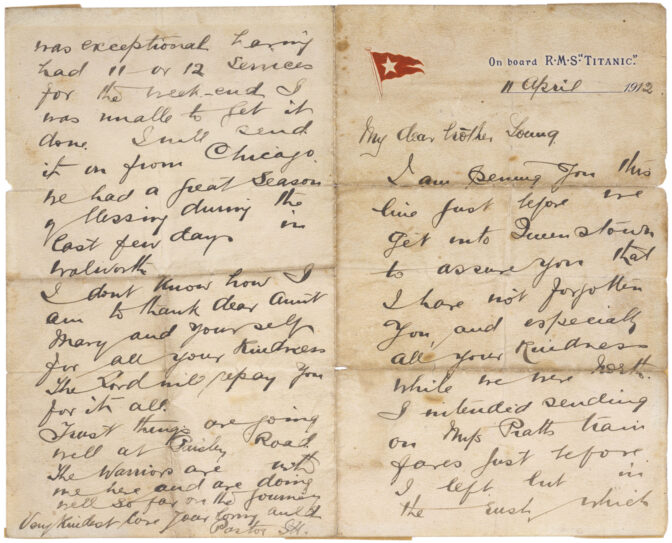 On board R·M·S "TITANIC."
11 April 1912
My dear brother Young
I am penning you this
line just before we
get into Queenstown
to assure you that
I have not forgotten
you and especially
all your kindness
while we were North.
I intended sending
on Mrs Pratts train
fares just before
I left but in
the rush, which
was exceptional having
had 11 or 12 Services
for the week-end I
was unable to get it
done. I will send
it on from Chicago.
We had a great Season
of blessing during the
last few days in
Walworth
I dont know how I
am to thank dear Aunt
Mary and yourself
for all your kindness
The Lord will repay you
for it all.
Trust things are going
well at Paisley Road
The Warriors are with
me here and are doing
well so far on the journey
Very kindest love your loving auld
Pastor J.H.